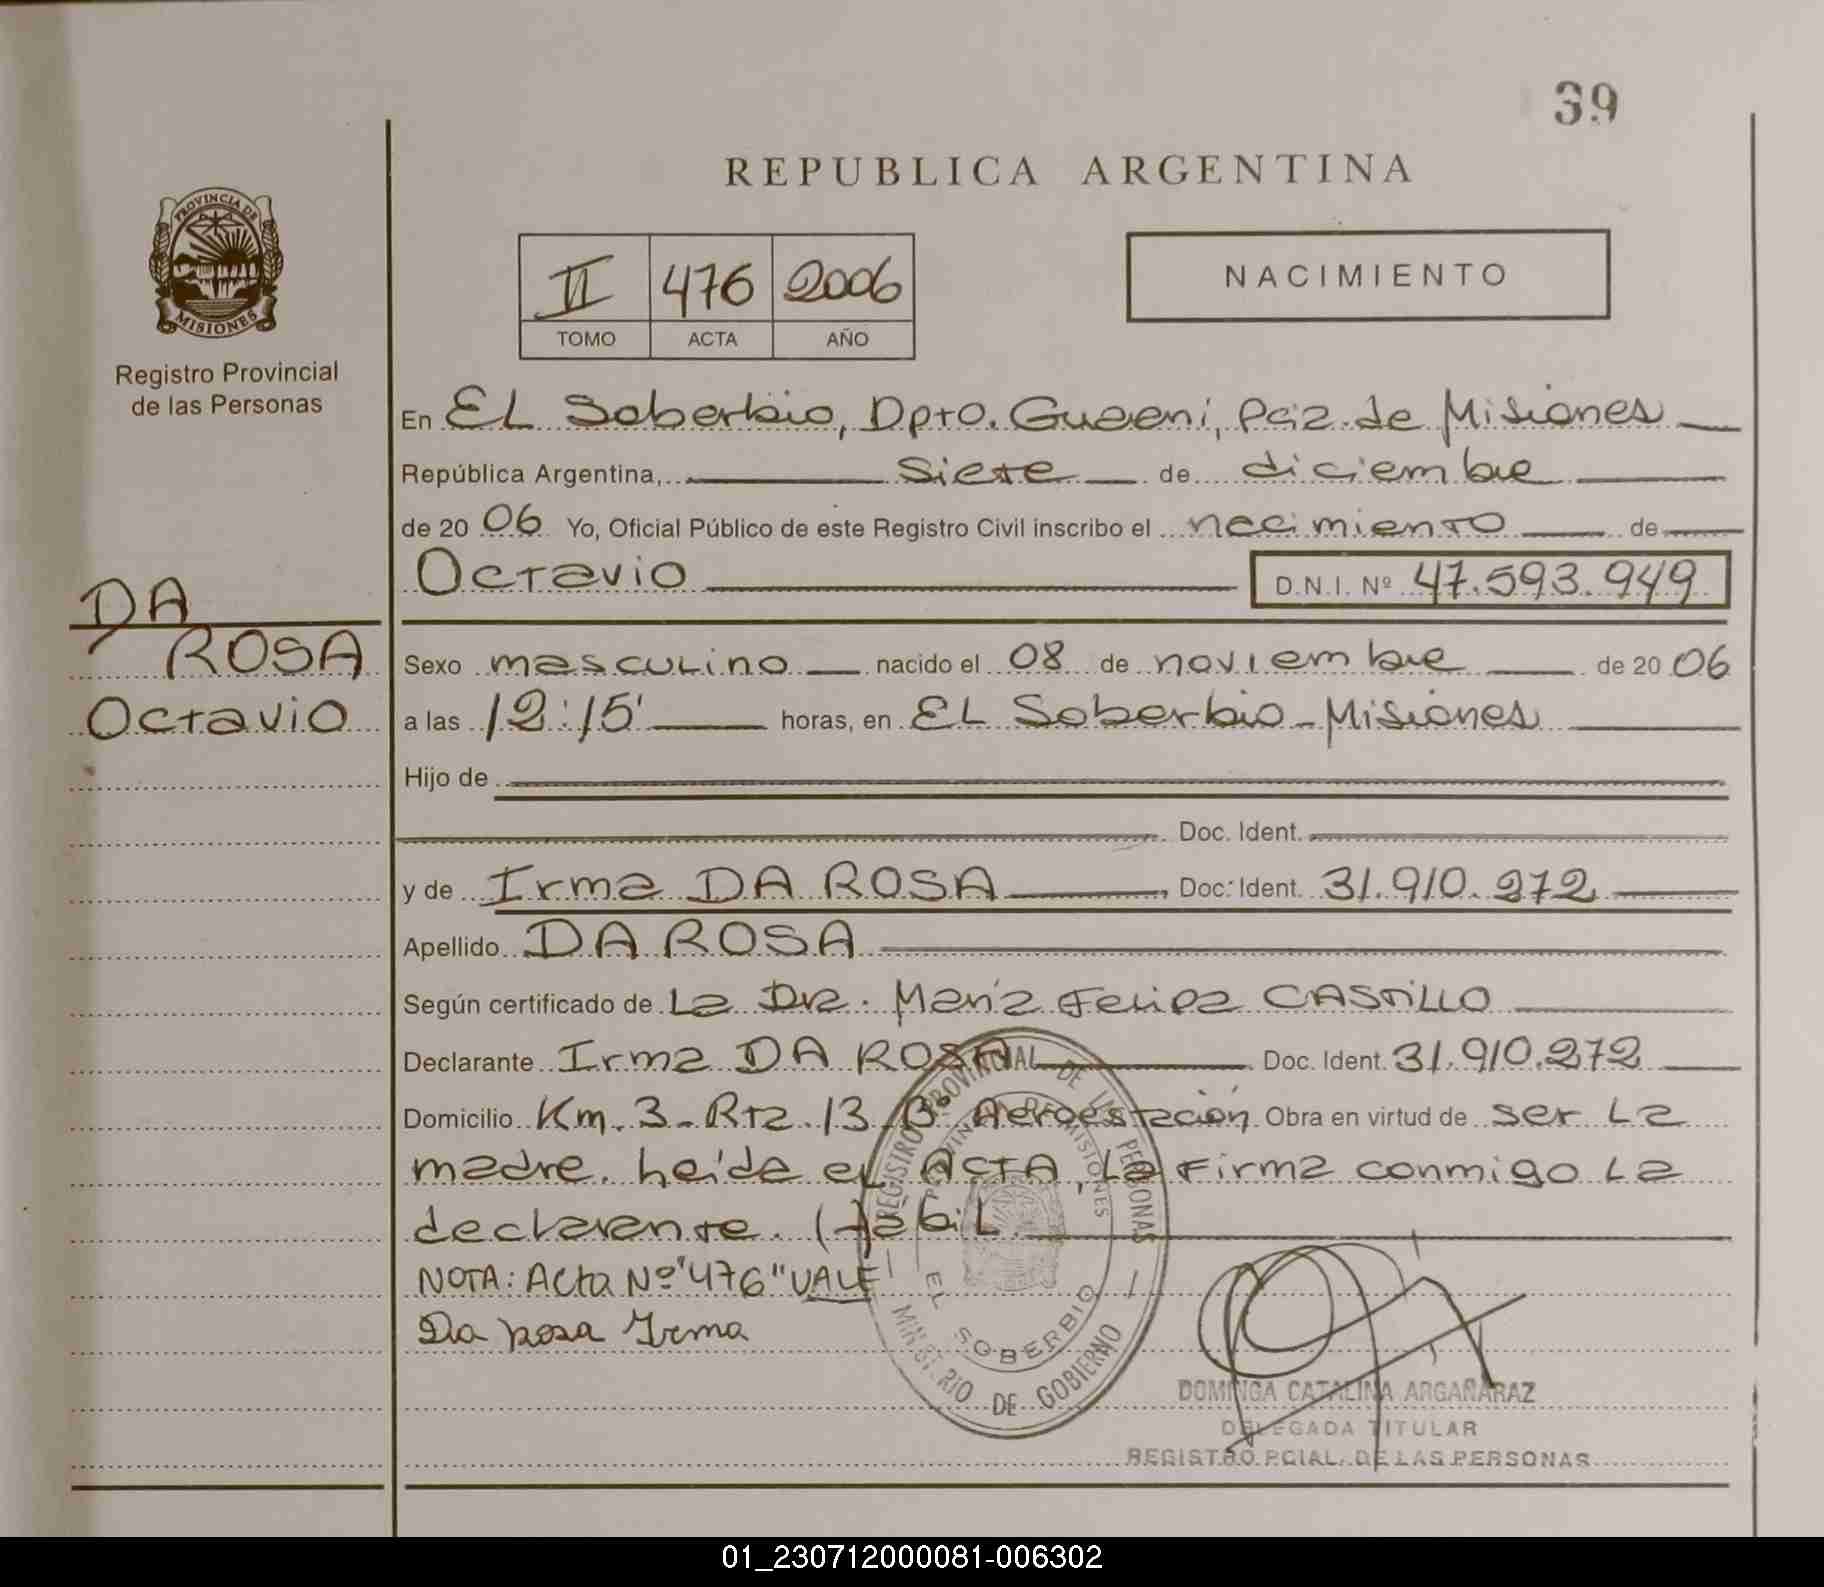 39
REPUBLICA ARGENTINA
PROVINCIA DE
MISIONES
Registro Provincial
de las Personas
II 476 2006
TOMO ACTA AÑO
NACIMIENTO
En EL Soberbio, Dpto. Guaraní, Pcia. de Misiones
República Argentina, siete de diciembre
de 2006 Yo, Oficial Público de este Registro Civil inscribo el nacimiento de
Octavio D.N.I. Nº 47.593.949
DA
ROSA
Octavio
Sexo masculino nacido el 08 de noviembre de 2006
a las 12:15' horas, en EL Soberbio - Misiones
Hijo de
Doc. Ident.
y de Irma DA ROSA, Doc. Ident. 31.910.272
Apellido DA ROSA
Según certificado de La Dra. María Felipa CASTILLO
Declarante Irma DA ROSA Doc. Ident. 31.910.272
Domicilio Km. 3 - Rta. 13 Bº Aeroestación Obra en virtud de ser La
madre. Leída el ACTA, La Firma conmigo La
declarante. (H)ábil.
NOTA: Acta Nº "476" VALE
Da rosa Irma
REGISTRO PROVINCIAL DE LAS PERSONAS
PROVINCIA DE MISIONES
EL SOBERBIO
MINISTERIO DE GOBIERNO
DOMINGA CATALINA ARGAÑARAZ
DELEGADA TITULAR
REGISTRO PCIAL. DE LAS PERSONAS
01_230712000081-006302